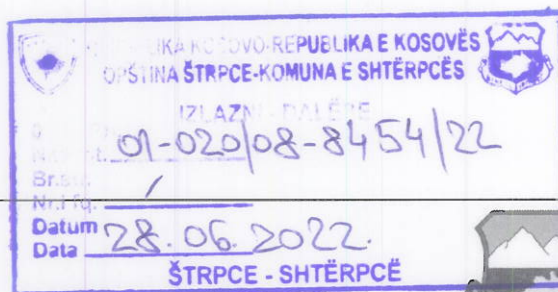 REPUBLIKA E KOSOVËS
OPŠTINA ŠTRPCE-KOMUNA E SHTËRPCËS
IZLAZNI - DALËSE
01-020/08-8454/22
Br.
Nr.i fq. /
Datum
Data 28.06.2022.
ŠTRPCE - SHTËRPCË